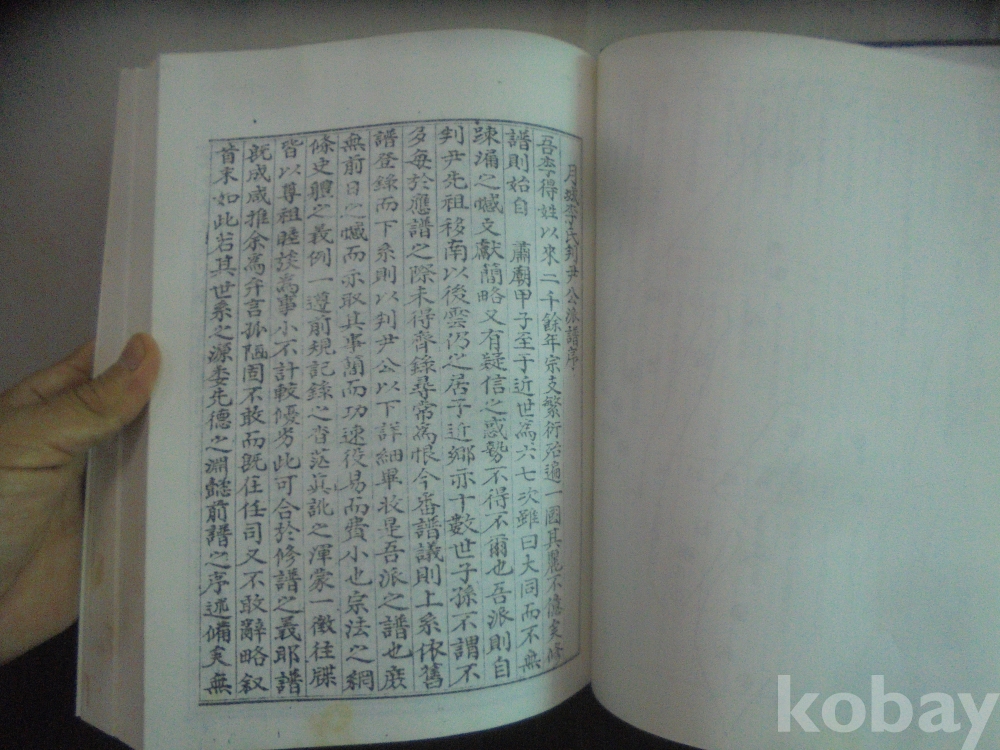 月城李氏判尹公派譜序
吾李得姓以來二千餘年宗支繁衍殆遍一國其麗不億矣修
譜則始自 肅廟甲子至于近世爲六七次雖曰大同而不無
踈漏之憾文獻簡略又有疑信之惑勢不得不爾也吾派則自
判尹先祖移南以後雲仍之居于近鄕亦十數世子孫不謂不
多每於應譜之際未得齊錄尋常爲恨今番譜議則上系依舊
譜登錄而下系則以判尹公以下詳細畢收是吾派之譜也庶
無前日之憾而亦取其事簡而功速役易而費小也宗法之綱
條史軆之義例一遵前規記錄之舛訛之渾蒙一徵往牒
皆以尊祖睦族爲事小不計較優劣此可合於修譜之義耶譜
旣成咸推余爲弁言孤陋固不敢而旣在任司又不敢辭略叙
首末如此若其世系之源委先德之淵懿前譜之序述備矣無
kobay